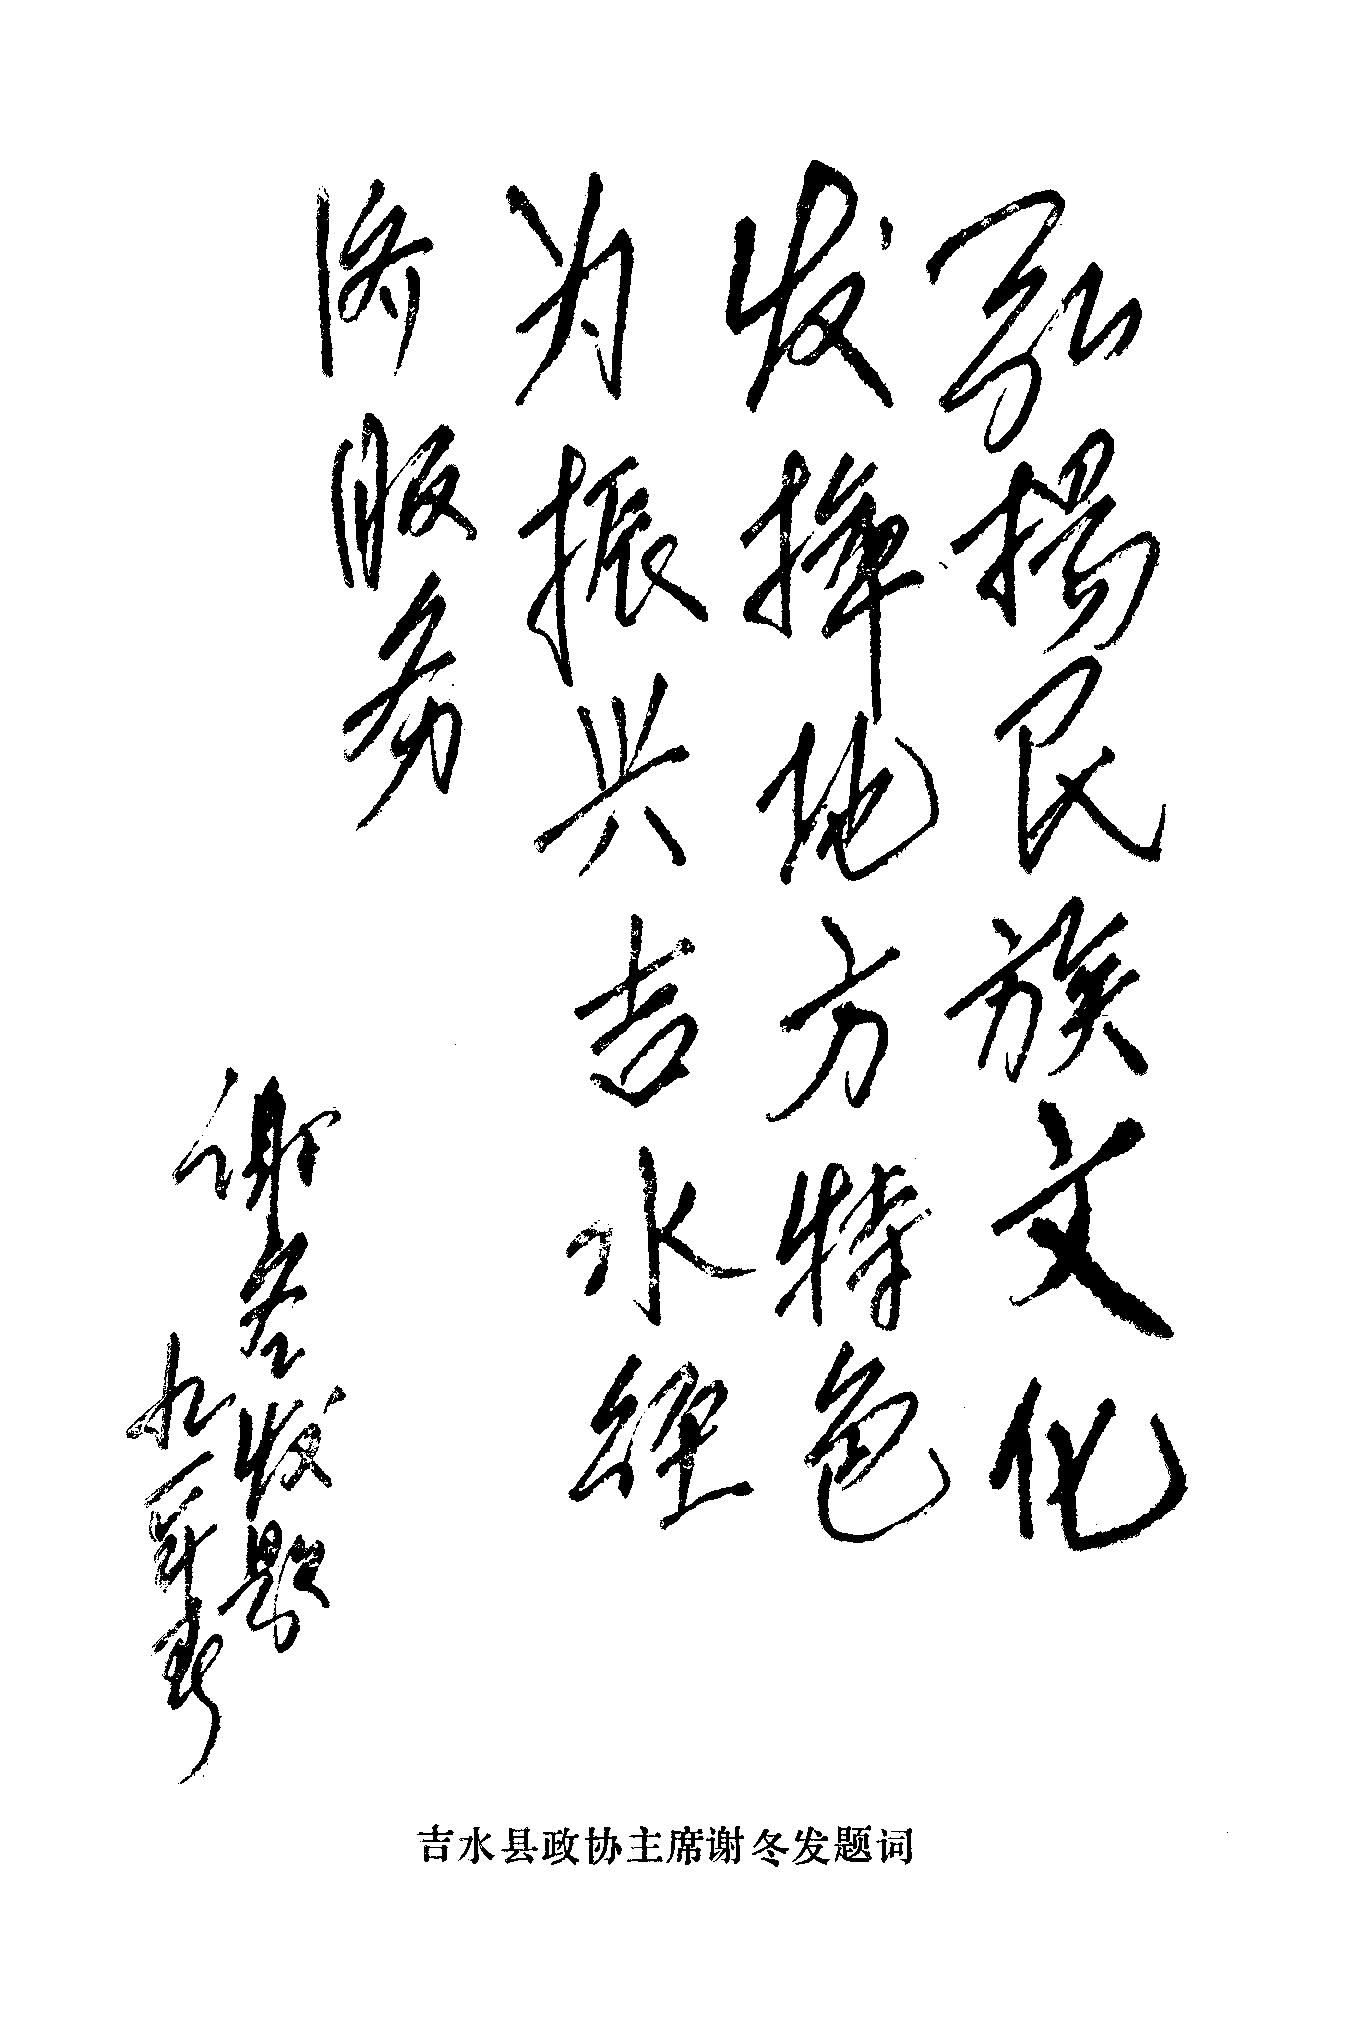 弘扬民族文化
发挥地方特色
为振兴吉水经
济服务
谢冬发题
九一年春
吉水县政协主席谢冬发题词